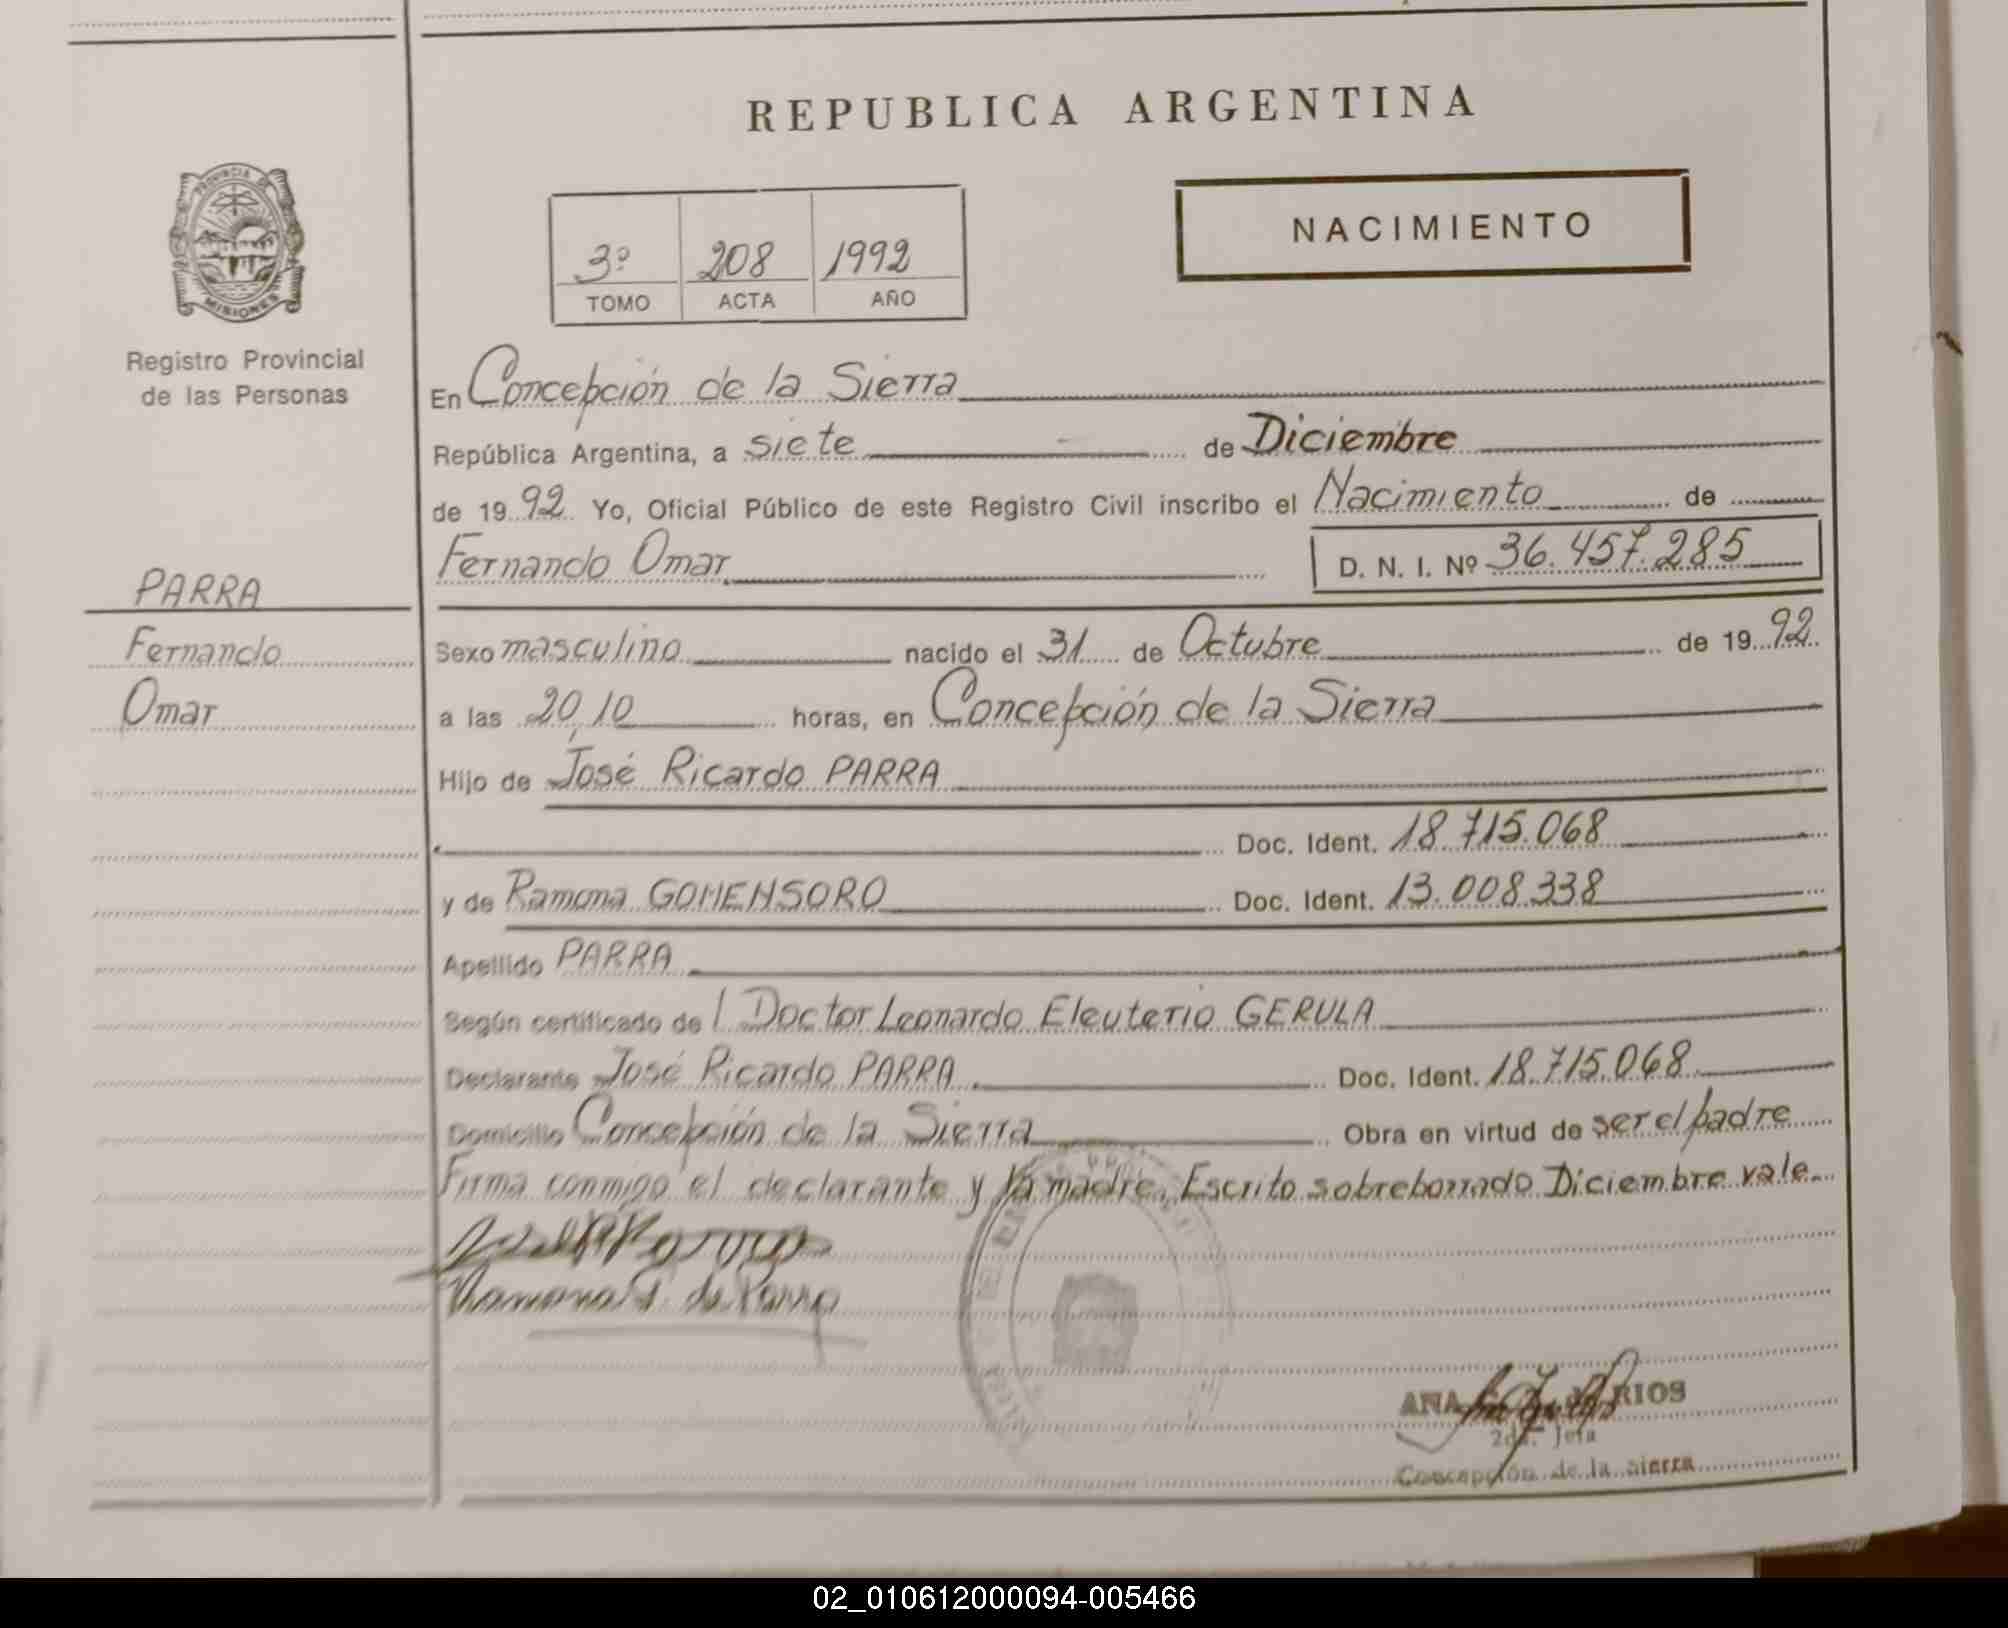 REPUBLICA ARGENTINA
PROVINCIA DE
MISIONES
Registro Provincial
de las Personas
NACIMIENTO
3º 208 1992
TOMO ACTA AÑO
En Concepción de la Sierra
República Argentina, a siete de Diciembre
de 1992 Yo, Oficial Público de este Registro Civil inscribo el Nacimiento de
Fernando Omar D. N. I. Nº 36.457.285
PARRA
Fernando
Omar
Sexo masculino nacido el 31 de Octubre de 1992
a las 20,10 horas, en Concepción de la Sierra
Hijo de José Ricardo PARRA
Doc. Ident. 18.715.068
y de Ramona GOMENSORO Doc. Ident. 13.008.338
Apellido PARRA
Según certificado de l Doctor Leonardo Eleuterio GERULA
Declarante José Ricardo PARRA Doc. Ident. 18.715.068
Domicilio Concepción de la Sierra Obra en virtud de ser el padre
Firma conmigo el declarante y la madre. Escrito sobreborrado Diciembre vale
Ramona G. de Parra
ANA RIOS
2da. Jefa
Concepción de la sierra
02_010612000094-005466